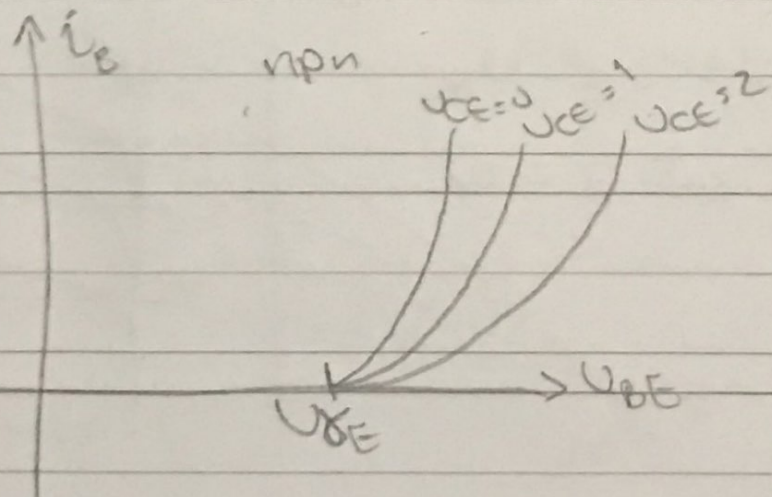 iB
npn
UCE=0
UCE=1
UCE=2
UBE
UγE